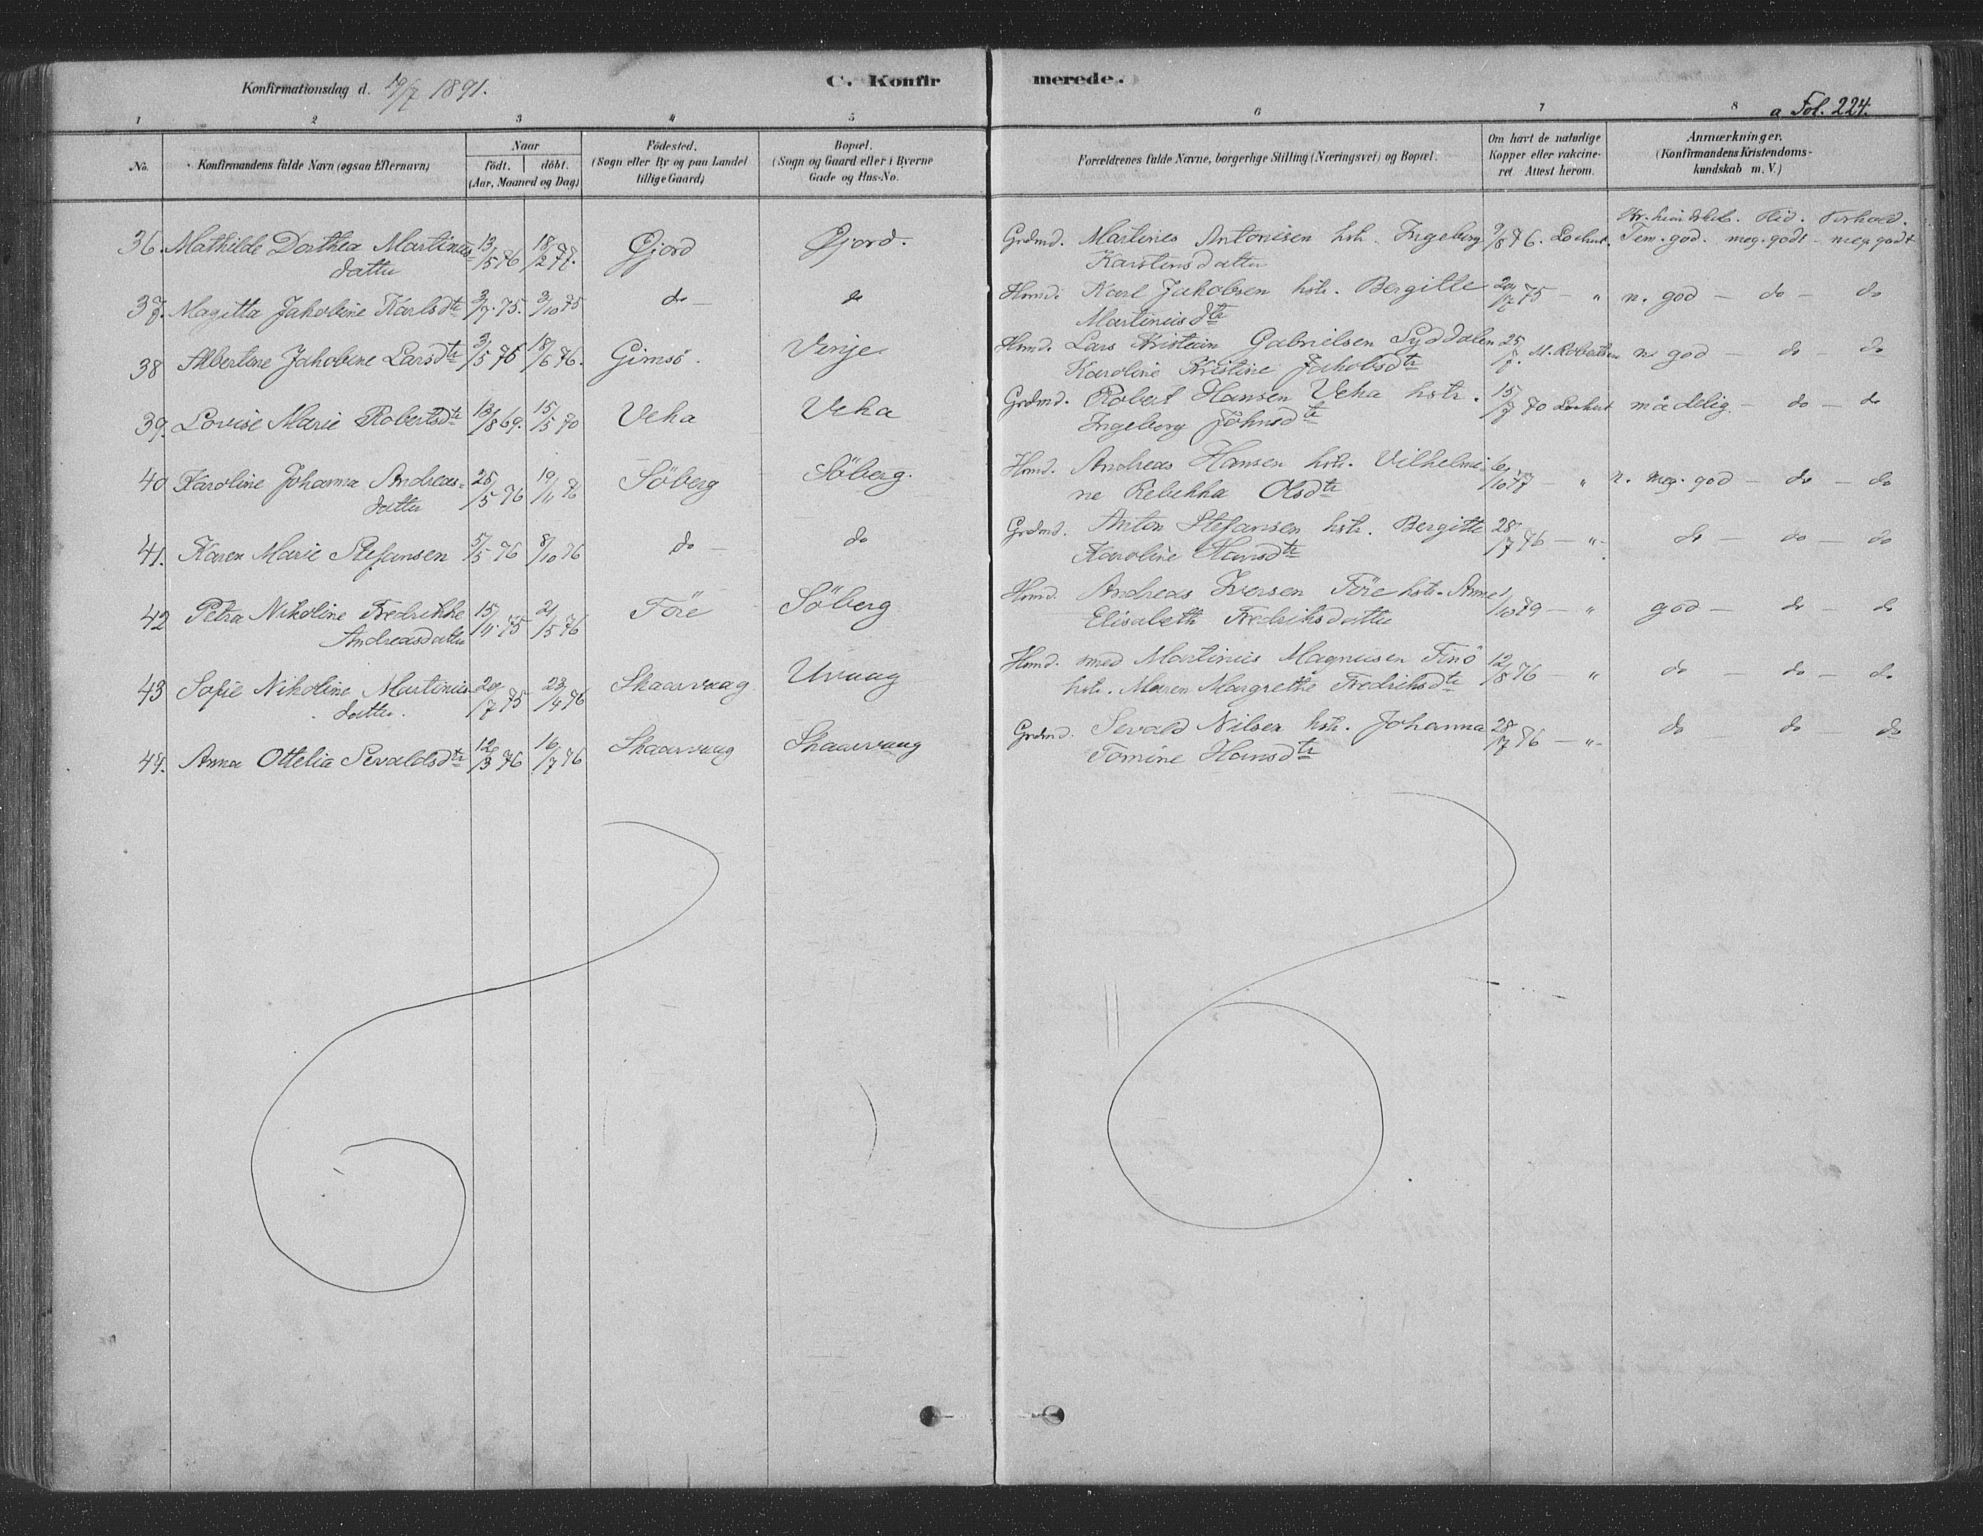 Konfirmationsdag d. 19/7 1891.
C. Konfirmerede.
a Fol. 224.
1 2 3 4 5 6 7 8
No. Konfirmandens fulde Navn (ogsaa Efternavn) Naar födt. döbt. (Aar, Maaned og Dag) Födested. (Sogn eller By og paa Landet tillige Gaard) Bopæl. (Sogn og Gaard eller i Byerne Gade og Hus-No. Forældrenes fulde Navne, borgerlige Stilling (Næringsvei) og Bopæl. Om havt de naturlige Kopper eller vakcineret Attest herom. Anmærkninger. (Konfirmandens Kristendomskundskab m. V.)
Kr. kundskab. Flid. Forhold.
36 Mathilde Dorthea Martinus- 13/5 76 18/2 77. Gjord Gjord. Grdmd. Martines Antonisen hstr. Ingeberg 9/8 76. Lockert Tem. god. meg. godt - meg. godt
datter Karstensdatter
37. Magitta Jakobine Karlsdtr 3/7. 75. 3/10 75 do - do Hmd. Karl Jakobsen hstr. Bergitte 29/7 75 - " n. god - do - do
Martinusdtr
38 Albertine Jakobine Larsdtr 3/5 76 18/6 76. Gimsö. Vinje Hmd. Lars Kristian Gabrielsen Syddalen 25/7. M. Robertsen n. god - do - do
Karoline Kristine Jakobsdtr
39. Lovise Marie Robertsdtr 13/8 69. 15/5 70 Veha Veha Grdmd. Robert Hansen Veha hstr. 15/7 70 Lockert mådelig. do - do
Ingeborg Johnsdtr
40 Karoline Johanna Andreas- 25/5 76 19/11 76 Söberg Söberg. Hmd. Andreas Hansen hstr. Vilhelmi- 6/10 77 - " n. meg. god - do - do
datter ne Rebekka Olsdtr
41. Karen Marie Stefansen 5/5 76 8/10 76 do - do Grdmd. Anton Stefansen hstr. Bergitte 28/7 76 - " - do - do - do
Karoline Hansdtr
42 Petra Nikoline Fredrikke 15/11. 75 21/5 76 Före Söberg Hmd. Andreas Iversen Före hstr. Anne 1/10 79 - " god - do - do
Andreasdatter Elisabeth Fredriksdatter
43 Sofie Nikoline Martinus 29/7 75 23/4 76 Skaarvaag Uvaag Hmd. med Martinus Magnusen Finö 12/8 76 - " do - do - do
datter. hstr. Maren Margrethe Fredriksdtr
44. Anna Ottelia Sevaldsdtr 12/3 76 16/7 76 Skaarvaag Skaarvaag Grdmd. Sevald Nilsen hstr. Johanna 28/7 76 - " - do do - do
Tomine Hansdtr